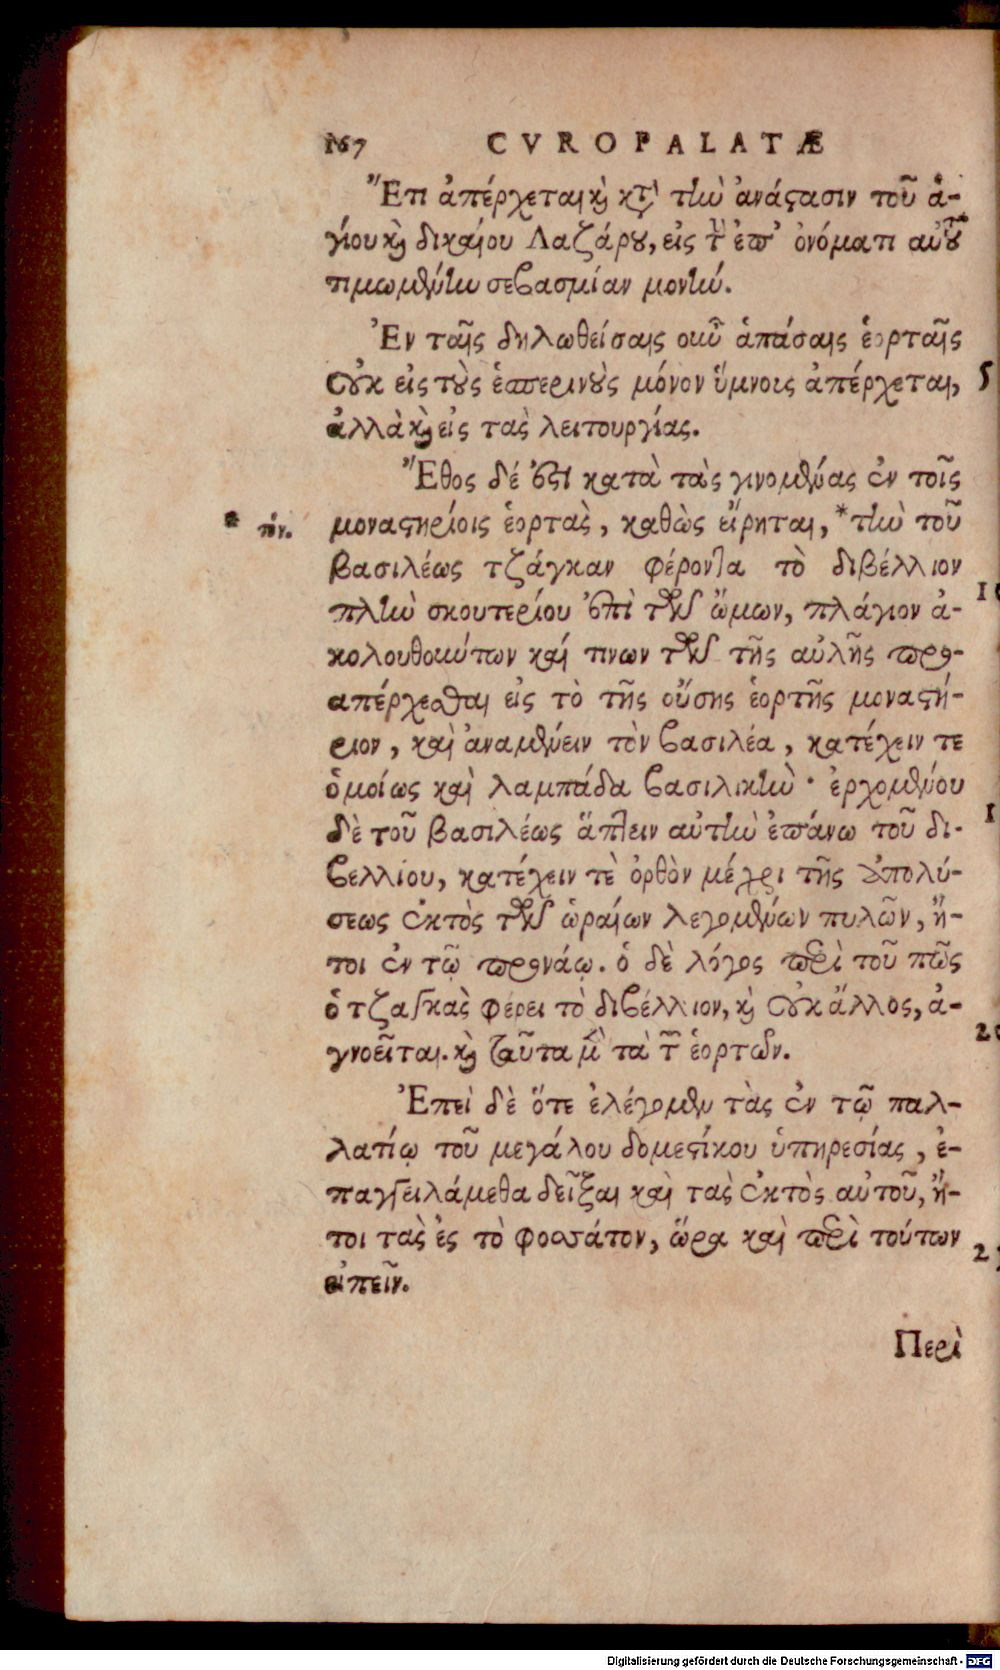 167 CVROPALATÆ
Ἔτι ἀπέρχεται καὶ κατὰ τὴν ἀνάστασιν τοῦ ἁ-
γίου καὶ δικαίου Λαζάρου, εἰς τὴν ἐπ' ὀνόματι αὐτοῦ
τιμωμένην σεβασμίαν μονήν.
Ἐν ταῖς δηλωθείσαις οὖν ἁπάσαις ἑορταῖς
οὐκ εἰς τοὺς ἑσπερινοὺς μόνον ὕμνοις ἀπέρχεται,
5
ἀλλὰ καὶ εἰς τὰς λειτουργίας.
Ἔθος δέ ἐστι κατὰ τὰς γινομένας ἐν τοῖς
μοναστηρίοις ἑορτὰς, καθὼς εἴρηται, *τὴν τοῦ
* τόν.
βασιλέως τζάγκαν φέροντα τὸ διβέλλιον
πλὴν σκουτερίου ἐπὶ τῶν ὤμων, πλάγιον ἀ-
10
κολουθούντων καί τινων τῶν τῆς αὐλῆς προ-
απέρχεσθαι εἰς τὸ τῆς οὔσης ἑορτῆς μοναστή-
ριον, καὶ ἀναμένειν τὸν βασιλέα, κατέχειν τε
ὁμοίως καὶ λαμπάδα βασιλικὴν· ἐρχομένου
δὲ τοῦ βασιλέως ἅπτειν αὐτὴν ἐπάνω τοῦ δι-
1
βελλίου, κατέχειν τὲ ὀρθὸν μέχρι τῆς ἀπολύ-
σεως ἐκτὸς τῶν ὡραίων λεγομένων πυλῶν, ἤ-
τοι ἐν τῷ προνάῳ. ὁ δὲ λόγος περὶ τοῦ πῶς
ὁ τζαγκὰς φέρει τὸ διβέλλιον, καὶ οὐκ ἄλλος, ἀ-
γνοεῖται. καὶ ταῦτα μὲν τὰ τῶν ἑορτῶν.
20
Ἐπεὶ δὲ ὅτε ἐλέγομεν τὰς ἐν τῷ παλ-
λατίῳ τοῦ μεγάλου δομεστίκου ὑπηρεσίας, ἐ-
παγγειλάμεθα δεῖξαι καὶ τὰς ἐκτὸς αὐτοῦ, ἤ-
τοι τὰς ἐς τὸ φοσσάτον, ὥρα καὶ περὶ τούτων
2
εἰπεῖν.
Περὶ
Digitalisierung gefördert durch die Deutsche Forschungsgemeinschaft - DFG